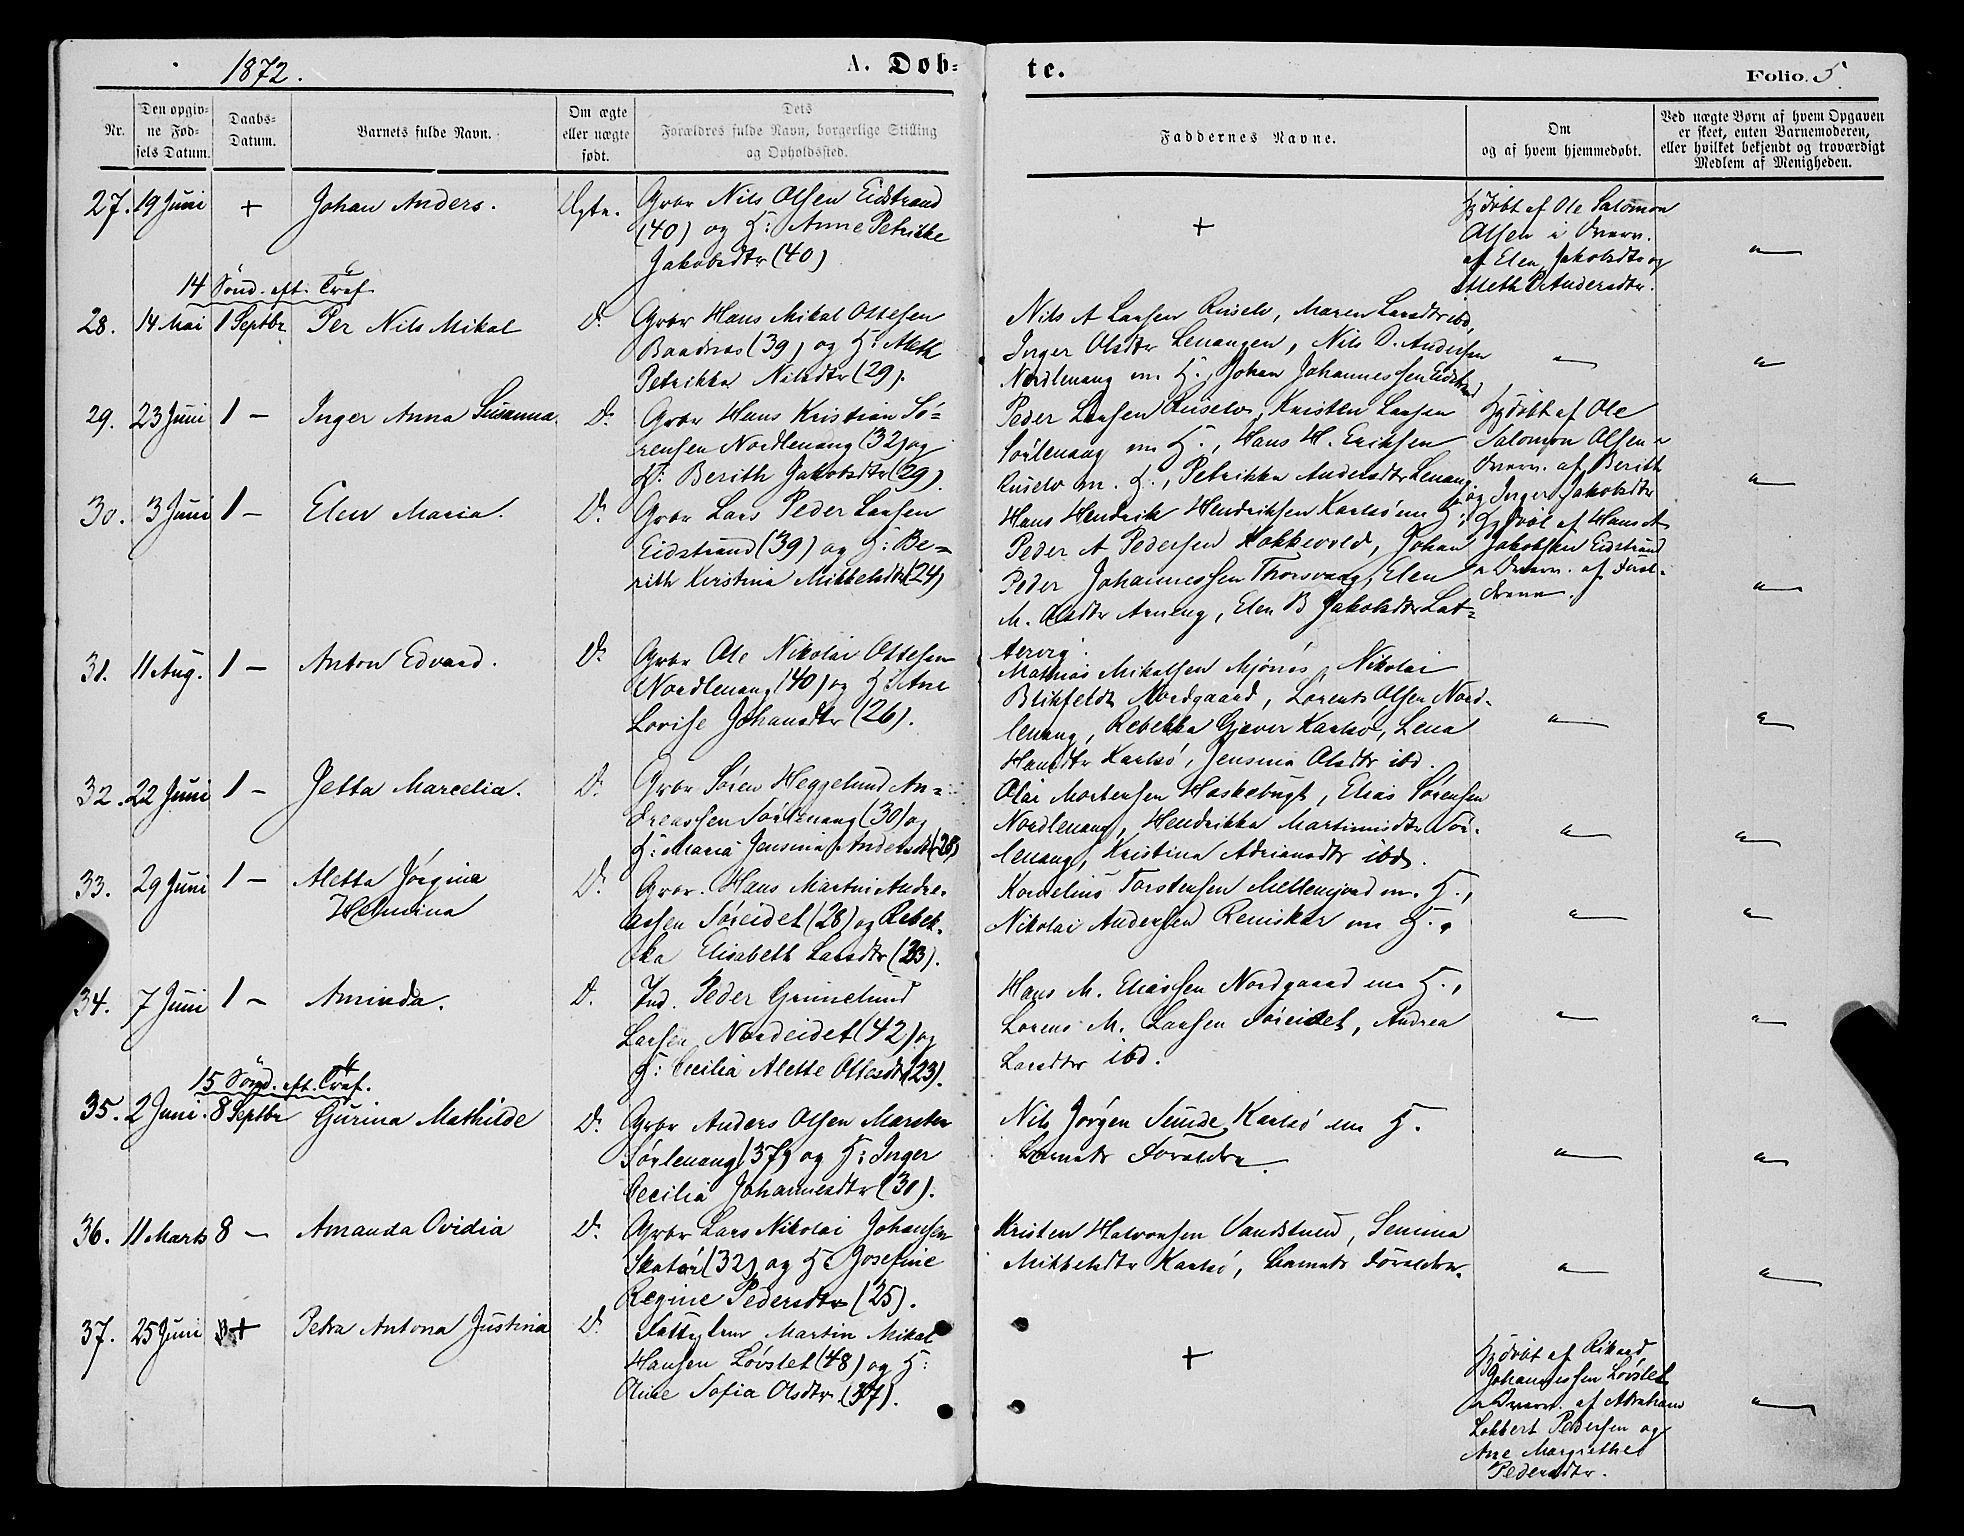 1872.
A. Døb-
te.
Folio. 5.
Nr.
Den opgiv-
ne Fød-
sels Datum.
Daabs-
Datum.
Barnets fulde Navn.
Om ægte
eller uægte
født.
Dets
Forældres fulde Navn, borgerlige Stilling
og Opholdssted.
Faddernes Navne.
Om
og af hvem hjemmedøbt.
Ved uægte Børn af hvem Opgaven
er skeet, enten Barnemoderen,
eller hvilket bekjendt og troværdigt
Medlem af Menigheden.
27. 19 Juni + Johan Anders. Ægte.
Gbr Nils Olsen Eidstrand
(40) og H: Anne Petrikke
Jakobsdtr (40)
+
Hjdøbt af Ole Salomon
Olsen i Overv.
af Elen Jakobsdtr og
Meth P Andersdtr.
"
14 Sønd. eft. Tref.
28. 14 Mai 1 Septbr Per Nils Mikal D.
Gbr Hans Mikal Ottesen
Baadnes (39) og H: Meth
Petrikka Nilsdtr (29).
Nils A Larsen Russelv, Maren Larsdtr ibd,
Inger Olsdtr Lenangen, Nils O. Andersen
Nordlenang m H., Johan Johannessen Eidstrand
" "
29. 23 Juni 1 – Inger Anna Susanna. D.
Gbr Hans Kristian Sø-
rensen Nordlenang (32) og
H: Berith Jakobsdtr (29).
Peder Larsen Russelv, Kristen Larsen
Sørlenang m H., Hans H. Eriksen
Russelv m. H., Petrikka Andersdtr Lenang
Hjdøbt af Ole
Salomon Olsen i
Overv. af Berith
og Inger Jakobsdtr
"
30. 3 Juni 1 – Elen Maria. D.
Gbr Lars Peder Larsen
Eidstrand (39) og H: Be-
rith Kirstina Mikkelsdtr (24)
Hans Hendrik Hendriksen Karlsø m H.,
Peder A Pedersen Kokkevold, Johan
Peder Johannessen Thorsvaag, Elen
M. Olsdtr Arneng, Elen B Jakobsdtr Lat-
tervig.
Hjdøbt af Hans A
Jakobsen Eidstrand
i Overv. af Foræl-
drene.
"
31. 11 Aug. 1 – Anton Edvard. D.
Gbr Ole Nikolai Ottesen
Nordlenang (40) og H: Ane
Lovise Johansdtr (26).
Mathias Mikalsen Mjønes, Nikolai
Blikfeldt Nordgaard, Lorents Olsen Nord-
lenang, Rebekka Gjæver Karlsø, Lena
Hansdtr Karlsø, Jensina Olsdtr ibd.
" "
32. 22 Juni 1 – Jetta Marcelia. D.
Gbr Søren Heggelund An-
dreassen Sørlenang (30) og
H: Maria Jensina Andersdtr (28)
Olai Mortensen Haskebugt, Elias Sørensen
Nordlenang, Hendrikka Martinusdtr Sør-
lenang, Kristina Adriansdtr ibd.
" "
33. 29 Juni 1 – Aletta Jørgine
Helmina D.
Gbr. Hans Martin Andre-
assen Søreidet (28) og Rebek-
ka Elisabeth Larsdtr (23).
Kornelius Torstensen Mellemjord m. H.,
Nikolai Andersen Reniskar m H.,
" "
34. 7 Juni 1 – Aminda. D.
Ind. Peder Grønnelund
Larsen Nordeidet (42) og
H: Cecilia Alette Ottesdtr (23).
Hans M. Eliassen Nordgaard m H.,
Lorens M. Larsen Søreidet, Andrea
Larsdtr ibd.
" "
15 Sønd. eft. Tref.
35. 2 Juni. 8 Septbr Gurina Mathilde D.
Gbr Anders Olsen Marsten
Sørlenang (37) og H: Inger
Cecilia Johannesdtr (30).
Nils Jørgen Sunde Karlsø m H.
Barnets Forældre.
" "
36. 11 Marts 8 – Amanda Ovidia D.
Gbr Lars Nikolai Johansen
Skatør (32) og H: Josefine
Regine Pedersdtr (25).
Kristen Halvorsen Vandstund, Semina
Mikkelsdtr Karlsø, Barnets Forældre.
" "
37. 25 Juni + Petra Antona Justina D.
Fattiglem Martin Mikal
Hansen Løvslet (48) og H:
Oline Sofia Olsdtr. (37).
+
Hjdøbt af Rikard
Johannessen Løvslet
i Overv. af Abraham
Lokkert Pedersen og
Ane Margrethe
Pedersdtr.
"